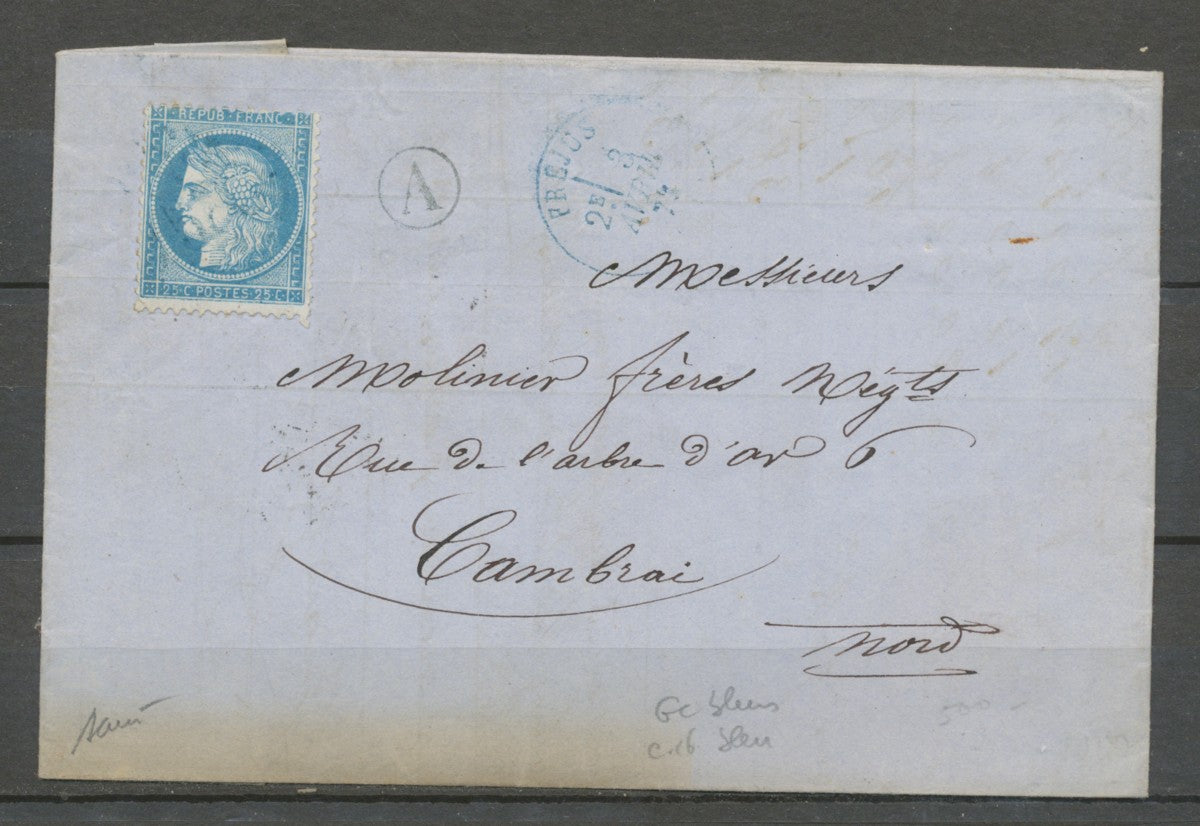 REPUB·FRANC·
25·C POSTES 25·C
A
FREJUS
2E
3
AVRIL
74
Messieurs
Molinier frères Négts
Rue de l'arbre d'or 6
Cambrai
Nord
GC bleus
c.16 bleu